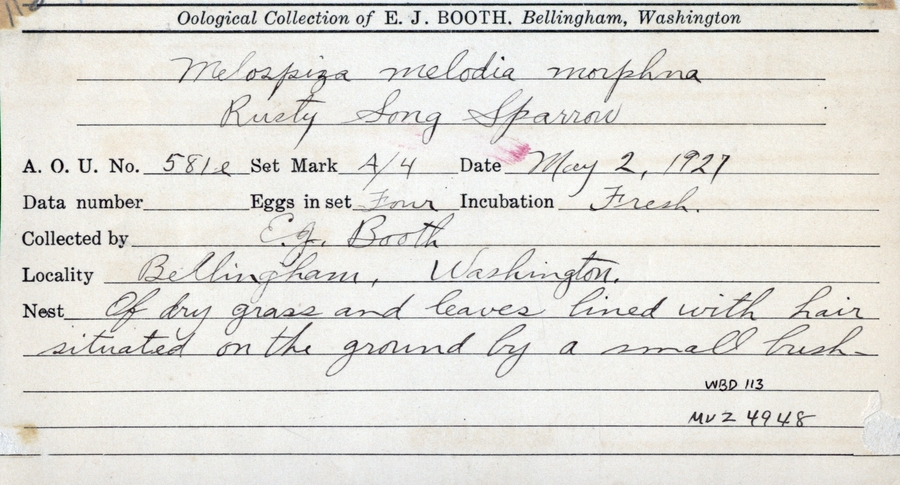 Oological Collection of E. J. BOOTH. Bellingham, Washington
Melospiza melodia morphna
Rusty Song Sparrow
A. O. U. No. 581e Set Mark A/4 Date May 2, 1927
Data number Eggs in set Four Incubation Fresh.
Collected by E.J. Booth
Locality Bellingham, Washington.
Nest Of dry grass and leaves lined with hair
situated on the ground by a small bush-
WBD 113
MVZ 4948